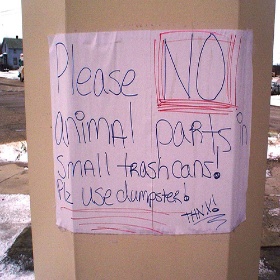 Please NO
animal parts in
small trashcans!
Plz use dumpster!
THNX!